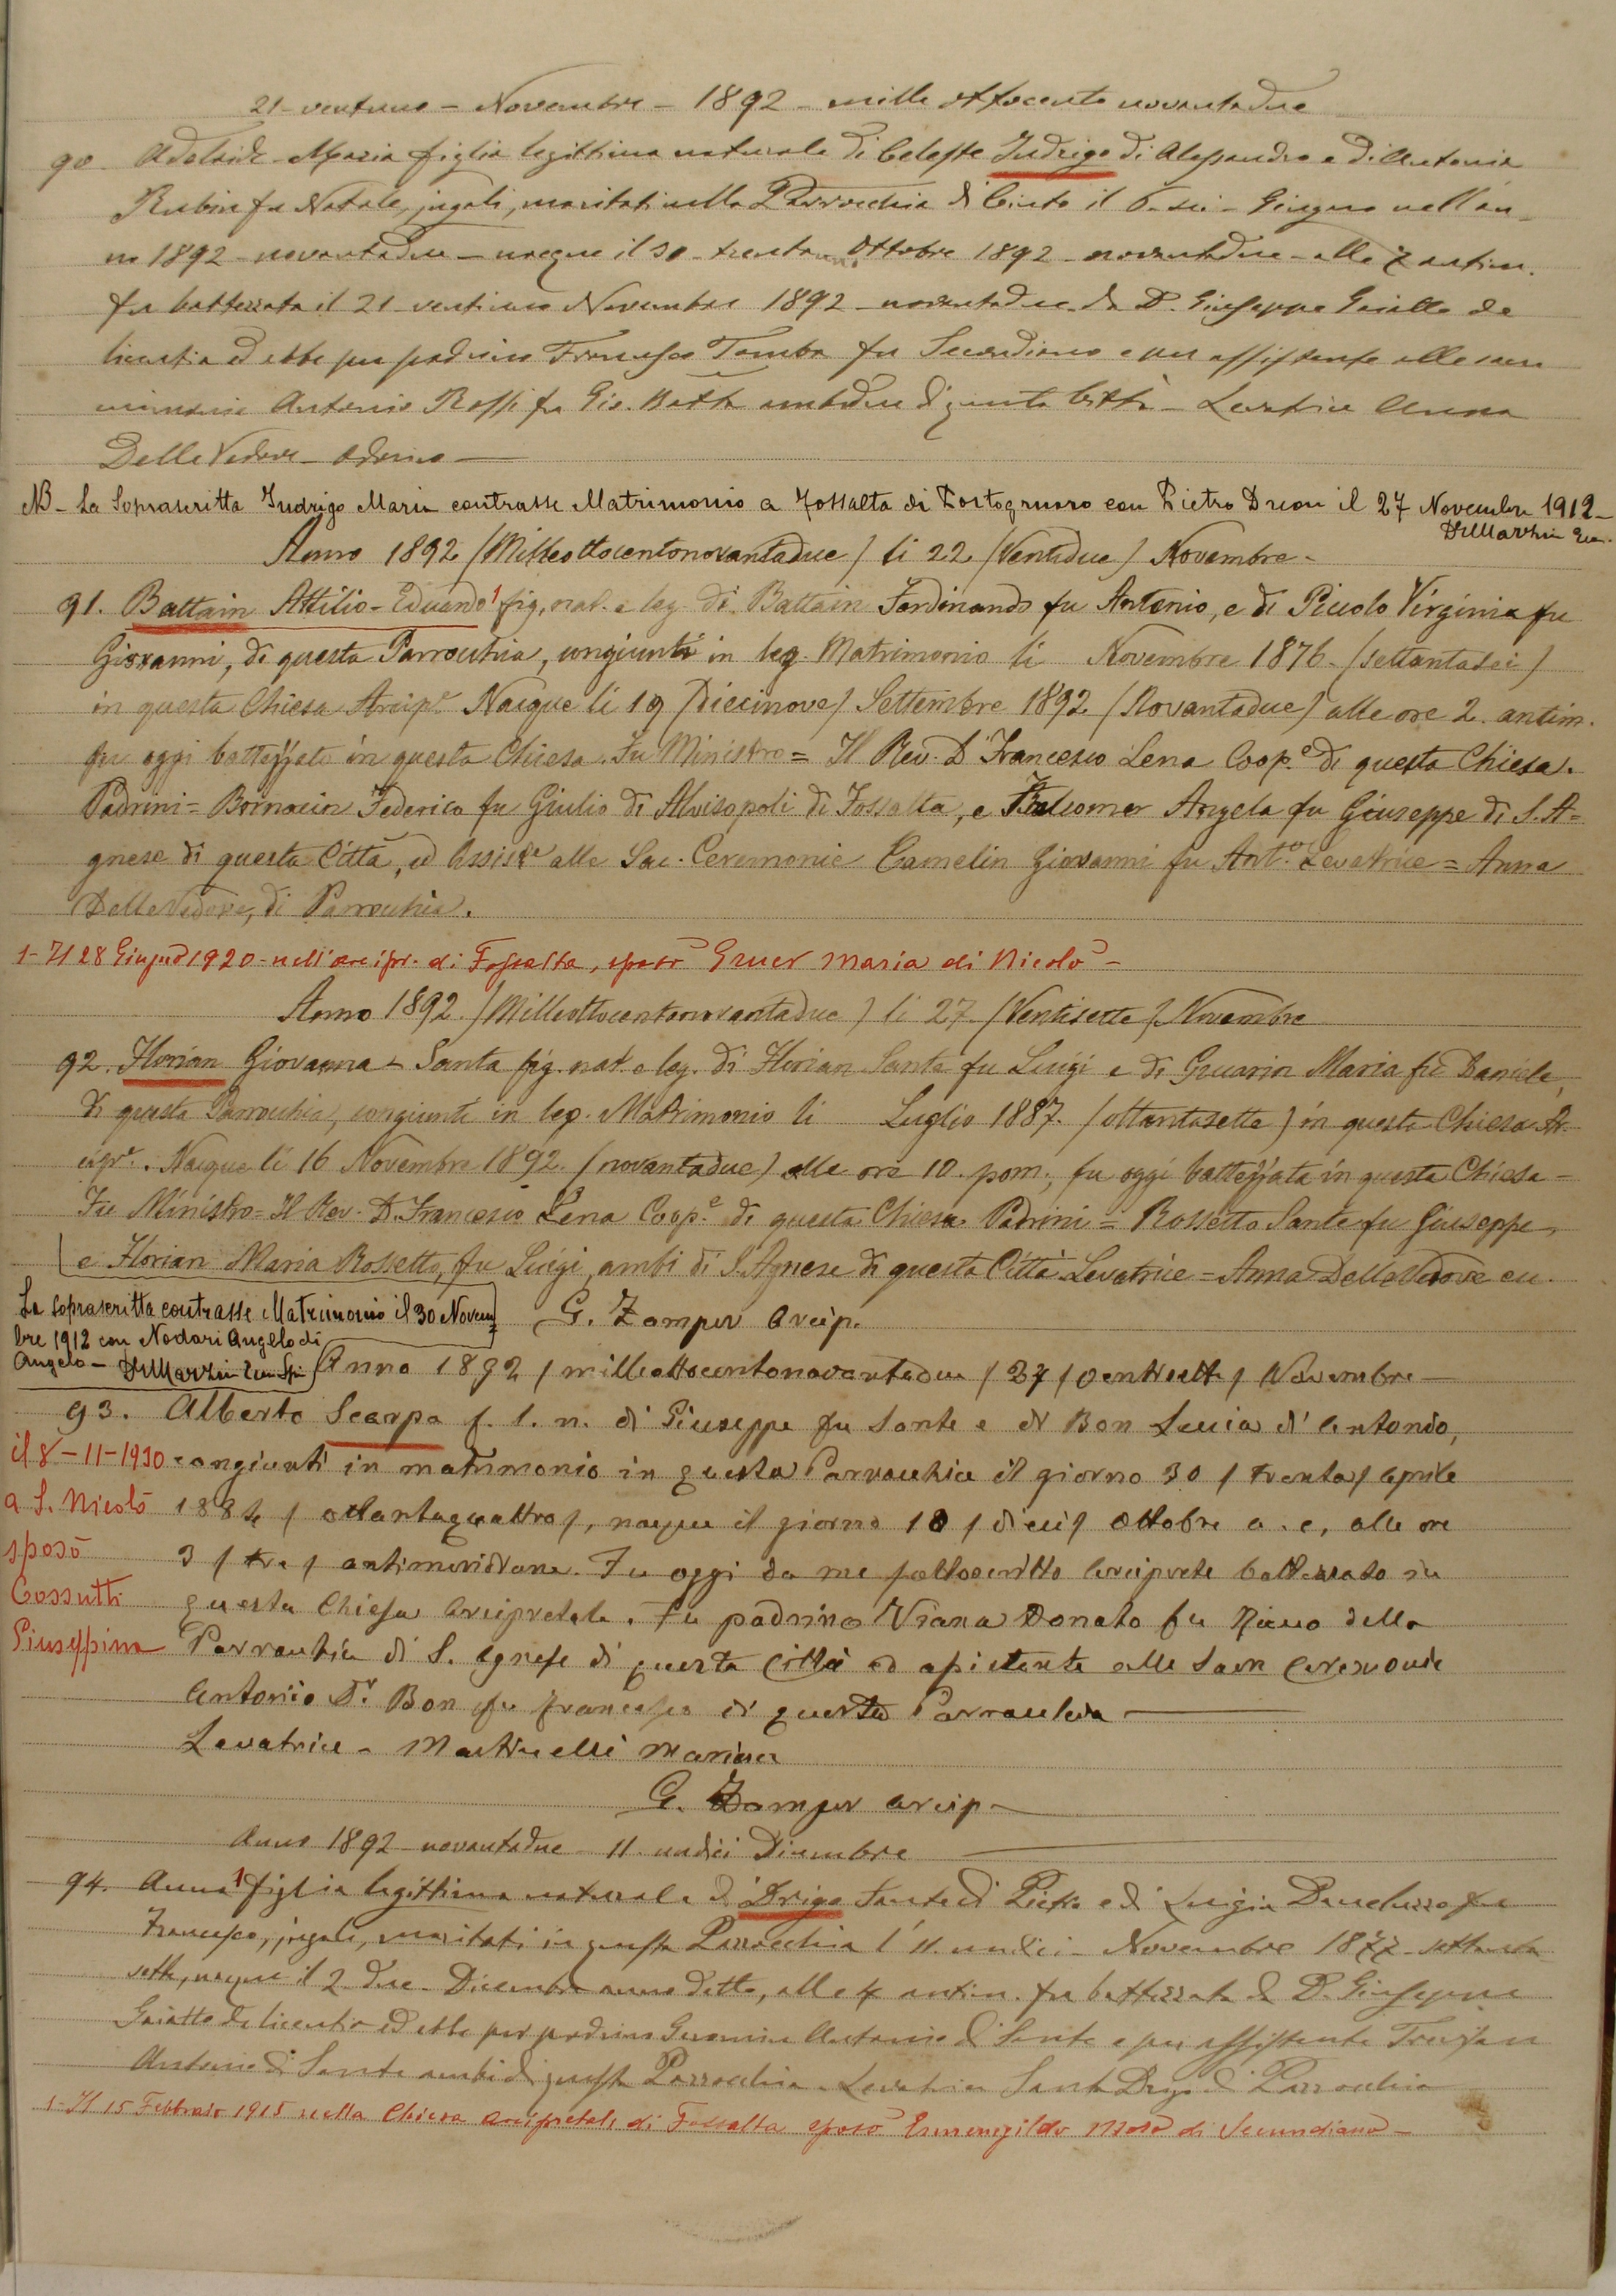 21 - ventuno - Novembre - 1892 - mille ottocento novantadue
90 Adelaide - Maria figlia legittima naturale di Celeste Indrigo di Alessandro e di Antonia
Rubin fu Natale, jugali, maritati nella Parrocchia di Cinto il 6 - sei - Giugno nell'an-
no 1892 - novantadue - nacque il 30 - trenta Ottobre 1892 - novantadue - alle 7 antim.
fu battezzata il 21 - ventiuno Novembre 1892 - novantadue da D. Giuseppe Gaiatto de
licentia ed ebbe per padrino Francesco Tomba fu Secondiano e per assistente alle sacre
Antonio Rossi fu Gio. Batta ambidue di questa Città - Levatrice Anna
Delle Vedove -
NB - La Soprascritta Indrigo Maria contrasse Matrimonio a Fossalta di Portogruaro con Pietro Dreon il 27 Novembre 1912 -
Anno 1892 / Milleottocentonovantadue / li 22 / Ventidue / Novembre -
91. Battain Attilio - Eduardo 1 fig. nat. e leg. di Battain Ferdinando fu Antonio, e di Piccolo Virginia fu
Giovanni, di questa Parrocchia, congiunti in leg. Matrimonio li Novembre 1876. / settantasei /
in questa Chiesa Arcip.e Nacque li 19 / Diecinove / Settembre 1892 / Novantadue / alle ore 2. antim.
fu oggi battezzato in questa Chiesa. Fu Ministro = Il Rev. D. Francesco Lena Coop.e di questa Chiesa.
Padrini = Bornacin Federico fu Giulio di Alvisopoli di Fossalta, e Falcomer Angela fu Giuseppe di S. A=
gnese di questa Città, ed Assist.e alle Sac. Ceremonie Camelin Giovanni fu Ant.o Levatrice = Anna
Delle Vedove, di Parrocchia.
1 - Il 28 Giugno 1920 - nell'arcipr. di Fossalta, sposò Gruer Maria di Nicolò -
Anno 1892. / Milleottocentonovantadue / li 27 / Ventisette / Novembre
92. Florian Giovanna - Santa fig. nat. e leg. di Florian Sante fu Luigi e di Guarin Maria fu Daniele,
di questa Parrocchia, congiunti in leg. Matrimonio li Luglio 1887. / ottantasette / in questa Chiesa Ar-
cipr.e. Nacque li 16 Novembre 1892. / novantadue / alle ore 10. pom., fu oggi battezzata in questa Chiesa -
Fu Ministro = Il Rev. D. Francesco Lena Coop.e di questa Chiesa. Padrini = Rossetto Sante fu Giuseppe,
e Florian Maria Rossetto, fu Luigi, ambi di S. Agnese di questa Città Levatrice = Anna Delle Vedove
La soprascritta contrasse Matrimonio il 30 Novem
bre 1912 con Nodari Angelo di
Angelo -
G. Zamper Arcip.
Anno 1892 / milleottocentonovantadue / 27 / ventisette / Novembre -
93. Alberto Scarpa f. l. n. di Giuseppe fu Sante e di Bon Lucia di Antonio,
congiunti in matrimonio in questa Parrocchia il giorno 30 / trenta / Aprile
1884 / ottantaquattro /, nacque il giorno 10 / dieci / Ottobre a. c. alle ore
3 / tre / antimeridiane. Fu oggi da me sottoscritto Arciprete battezzato in
questa Chiesa Arcipretale. Fu padrino Viana Donato fu della
Parrocchia di S. Agnese di questa Città ed assistente alle Sacre Ceremonie
Antonio Dr. Bon fu Francesco di questa Parrocchia
Levatrice - Martinelli Marina
il 8 - 11 - 1930
a S. Nicolò
sposò
Cossutti
Giuseppina
G. Zamper arcip -
Anno 1892 - novantadue - 11 - undici Dicembre
94. Anna 1 figlia legittima naturale di Drigo Sante di Pietro e di Luigia fu
Francesco, jugali, maritati in questa Parrocchia l'11 undici - Novembre 1877 - settanta
sette, nacque il 2 due - Dicembre anno detto, alle 4 antim. fu battezzata da D. Giuseppe
Gaiatto de licentia ed ebbe per padrino Antonio di Sante e per assistente Trevisan
Antonio di Sante ambi di questa Parrocchia - Levatrice Santa Drigo di Parrocchia
1 - Il 15 Febbraio 1915 nella Chiesa Arcipretale di Fossalta sposò Ermenegildo Moro di Secondiano -